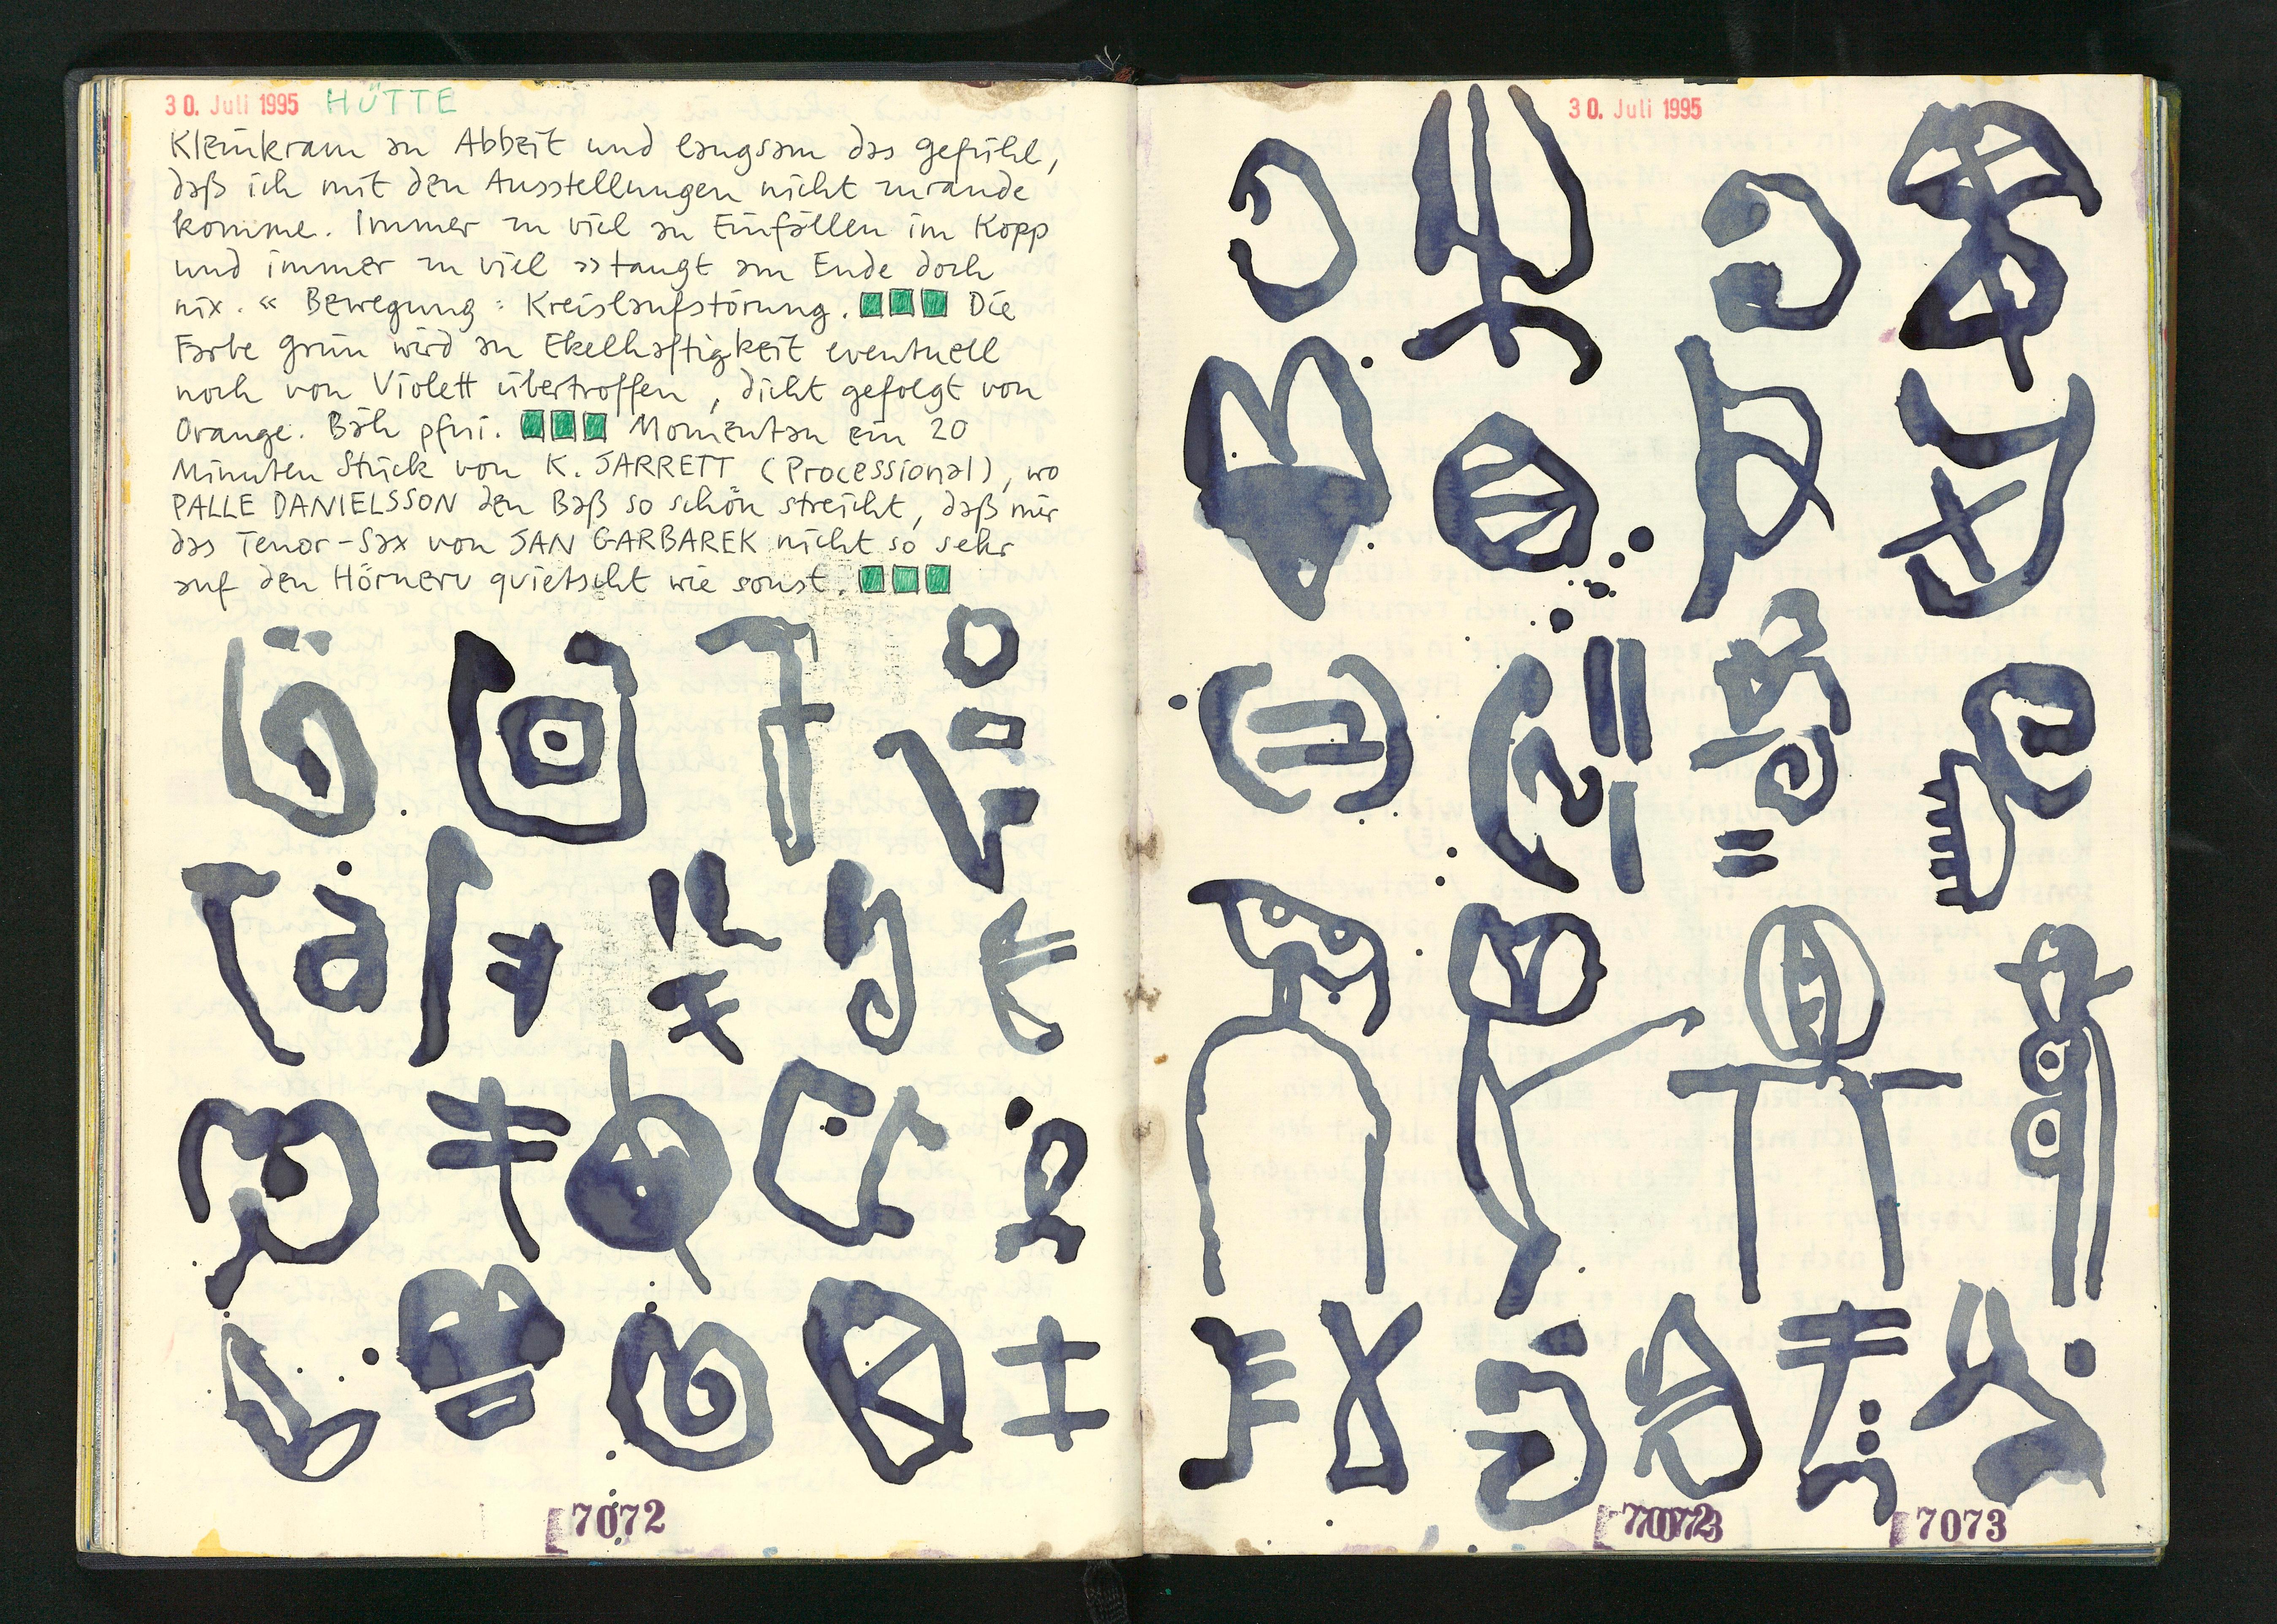 30. Juli 1995 HÜTTE
Kleinkram an Abbeit und langsam das gefühl,
daß ich mit den Ausstellungen nicht zurande
komme. Immer zu viel an Einfällen im Kopp
und immer zu viel »taugt am Ende doch
nix.« Bewegung: Kreislaufstörung. Die
Farbe grün wird an Ekelhaftigkeit eventuell
noch von Violett übertroffen, dicht gefolgt von
Orange. Bäh pfui. Momentan ein 20
Minuten Stück von K. JARRETT (Processional), wo
PALLE DANIELSSON den Baß so schön streicht, daß mir
das Tenor-Sax von JAN GARBAREK nicht so sehr
auf den Hörnerv quietscht wie sonst.
7072
30. Juli 1995
7073